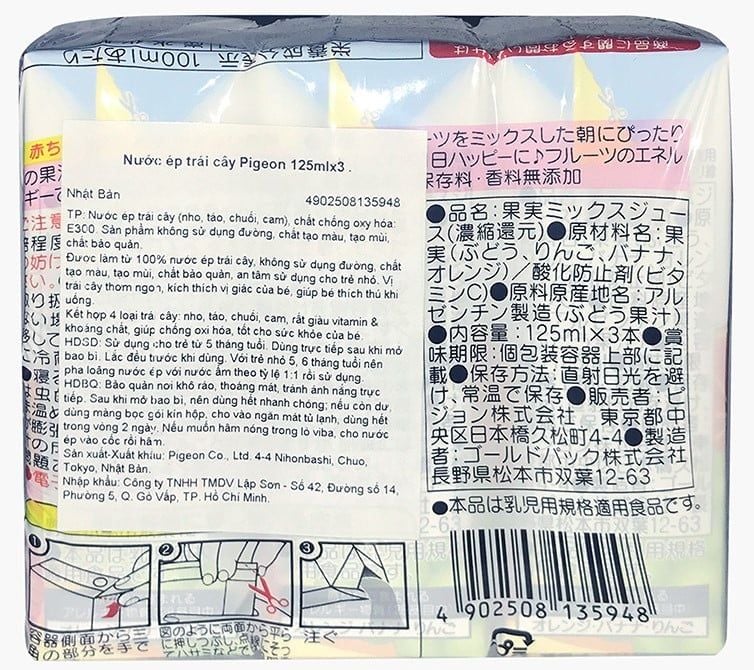 栄養成分表示 100mlあたり
商品に関するお問い合せは
赤ち
ーツをミックスした朝にぴったり
日ハッピーに♪フルーツのエネル
保存料・香料無添加
Nước ép trái cây Pigeon 125mlx3 .
Nhật Bản
4902508135948
TP: Nước ép trái cây (nho, táo, chuối, cam), chất chống oxy hóa:
E300. Sản phẩm không sử dụng đường, chất tạo màu, tạo mùi,
chất bảo quản.
Được làm từ 100% nước ép trái cây, không sử dụng đường, chất
tạo màu, tạo mùi, chất bảo quản, an tâm sử dụng cho trẻ nhỏ. Vị
trái cây thơm ngon, kích thích vị giác của bé, giúp bé thích thú khi
uống.
Kết hợp 4 loại trái cây: nho, táo, chuối, cam, rất giàu vitamin &
khoáng chất, giúp chống oxi hóa, tốt cho sức khỏe của bé.
HDSD: Sử dụng cho trẻ từ 5 tháng tuổi. Dùng trực tiếp sau khi mở
bao bì. Lắc đều trước khi dùng. Với trẻ nhỏ 5, 6 tháng tuổi nên
pha loãng nước ép với nước ấm theo tỷ lệ 1:1 rồi sử dụng.
HDBQ: Bảo quản nơi khô ráo, thoáng mát, tránh ánh nắng trực
tiếp. Sau khi mở bao bì, nên dùng hết nhanh chóng; nếu còn dư,
dùng màng bọc gói kín hộp, cho vào ngăn mát tủ lạnh, dùng hết
trong vòng 2 ngày. Nếu muốn hâm nóng trong lò viba, cho nước
ép vào cốc rồi hâm.
Sản xuất-Xuất khẩu: Pigeon Co., Ltd. 4-4 Nihonbashi, Chuo,
Tokyo, Nhật Bản.
Nhập khẩu: Công ty TNHH TMDV Lập Sơn - Số 42, Đường số 14,
Phường 5, Q. Gò Vấp, TP. Hồ Chí Minh.
●品名:果実ミックスジュー
ス(濃縮還元)●原材料名:果
実(ぶどう、りんご、バナナ、
オレンジ)/酸化防止剤(ビタ
ミンC)●原料原産地名:アル
ゼンチン製造(ぶどう果汁)
●内容量:125ml×3本●賞
味期限:個包装容器上部に記
載●保存方法:直射日光を避
け、常温で保存●販売者:ピ
ジョン株式会社 東京都中
央区日本橋久松町4-4●製造
者:ゴールドパック株式会社
長野県松本市双葉12-63
●本品は乳児用規格適用食品です。
1 2 3
容器側面から三
角の部分を手で
図のように両面から平ら
に押しつぶし、点線
注ぐ
オレンジ・バナナ・りんご
4 902508 135948